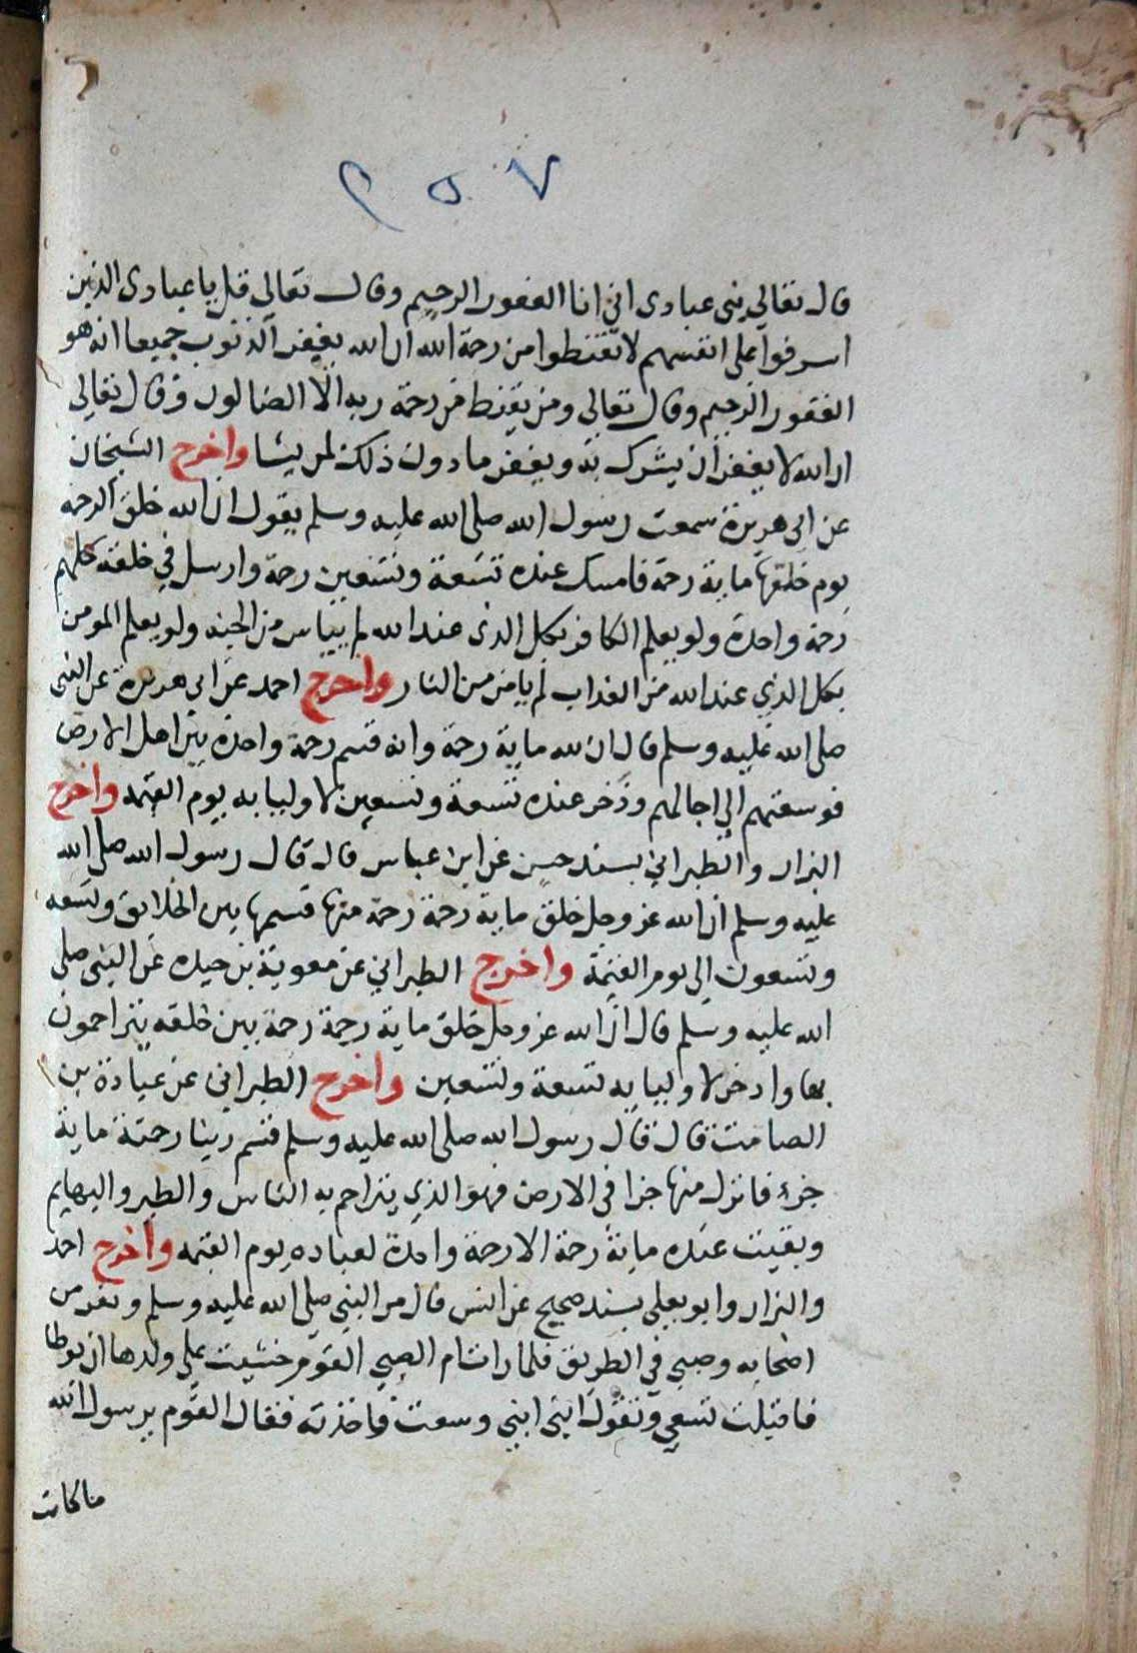 قال تعالى نبي عبادى اني انا الغفور الرحيم وقال تعالى قل يا عبادى الذين
اسرفوا على انفسهم لا تقنطوا من رحمة الله ان الله يغفر الذنوب جميعا انه هو
الغفور الرحيم وقال تعالى ومن يقنط من رحمة ربه الا الضالون وقال تعالى
ان الله لا يغفر ان يشرك به ويغفر ما دون ذلك لمن يشا واخرج الشيخان
عن ابى هريرة سمعت رسول الله صلى الله عليه وسلم يقول ان الله خلق الرحمة
يوم خلقها ماية رحمة فامسك عنده تسعة وتسعين رحمة وارسل في خلقه كلهم
رحمة واحدة ولو يعلم الكافر بكل الذى عند الله لم يياس من الجنه ولو يعلم المومن
بكل الذي عند الله من العذاب لم يامن من النار واخرج احمد عن ابى هريرة عن النبى
صلى الله عليه وسلم قال ان لله ماية رحمة وانه قسم رحمة واحدة بين اهل الارض
فوسعتهم الي اجالهم وذخر عنده تسعة وتسعين لاوليايه يوم القيمه واخرج
البزار والطبراني بسند حسن عن ابن عباس قال قال رسول الله صلى الله
عليه وسلم ان الله عز وجل خلق ماية رحمة رحمة منها قسمها بين الخلايق وتسعه
وتسعون الى يوم القيمة واخرج الطبراني عن معوية بن حيده عن النبى صلى
الله عليه وسلم قال ان الله عز وجل خلق ماية رحمة رحمة بين خلقه يتراحمون
بها وادخر لاوليايه تسعة وتسعين واخرج الطبراني عن عبادة بن
الصامت قال قال رسول الله صلى الله عليه وسلم قسم ربنا رحمته ماية
جزء فانزل منها جزا فى الارض فهو الذي يتراحم به الناس والطير والبهايم
وبقيت عنده ماية رحمة الا رحمة واحدة لعباده يوم القيمه واخرج احمد
والبزار وابو يعلى بسند صحيح عن انس قال مر النبي صلى الله عليه وسلم ونفر من
اصحابه وصبي في الطريق فلما رات ام الصبي القوم خشيت على ولدها ان يوطا
فاقبلت تسعي وتقول ابنى ابني وسعت فاخذته فقال القوم يرسول الله
ما كانت